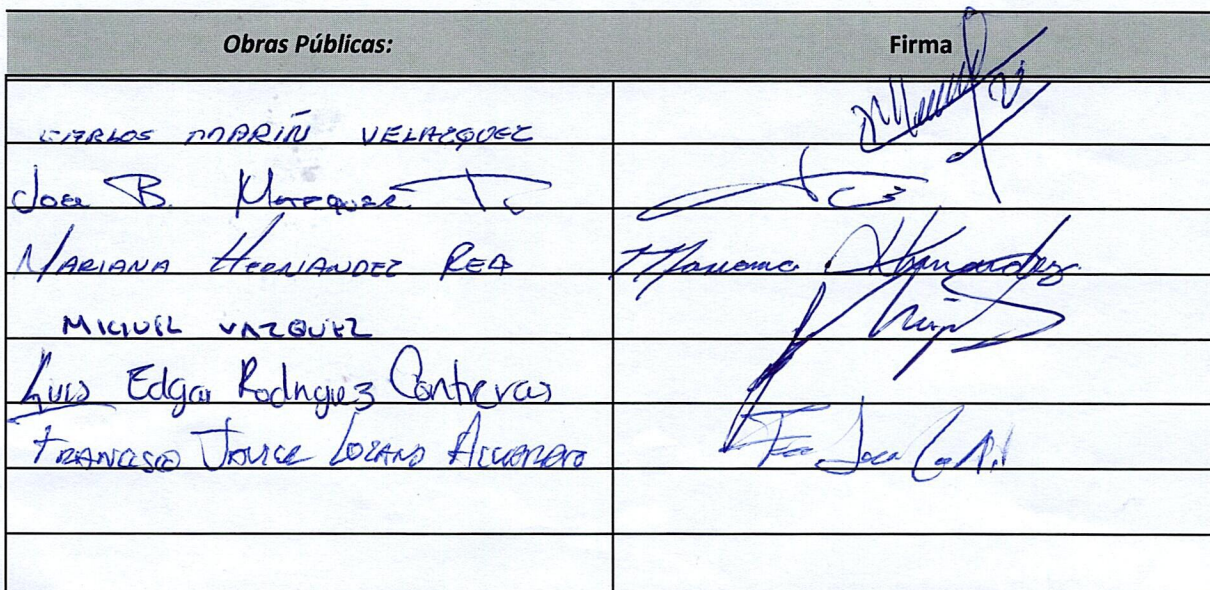 Obras Públicas: Firma
CARLOS MARIN VELAZQUEZ
Jose B. Marquez T.
MARIANA HERNANDEZ REA Mariana Hernandez
MIGUEL VAZQUEZ
Luis Edgar Rodriguez Contreras
FRANCISCO JAVIER LOZANO